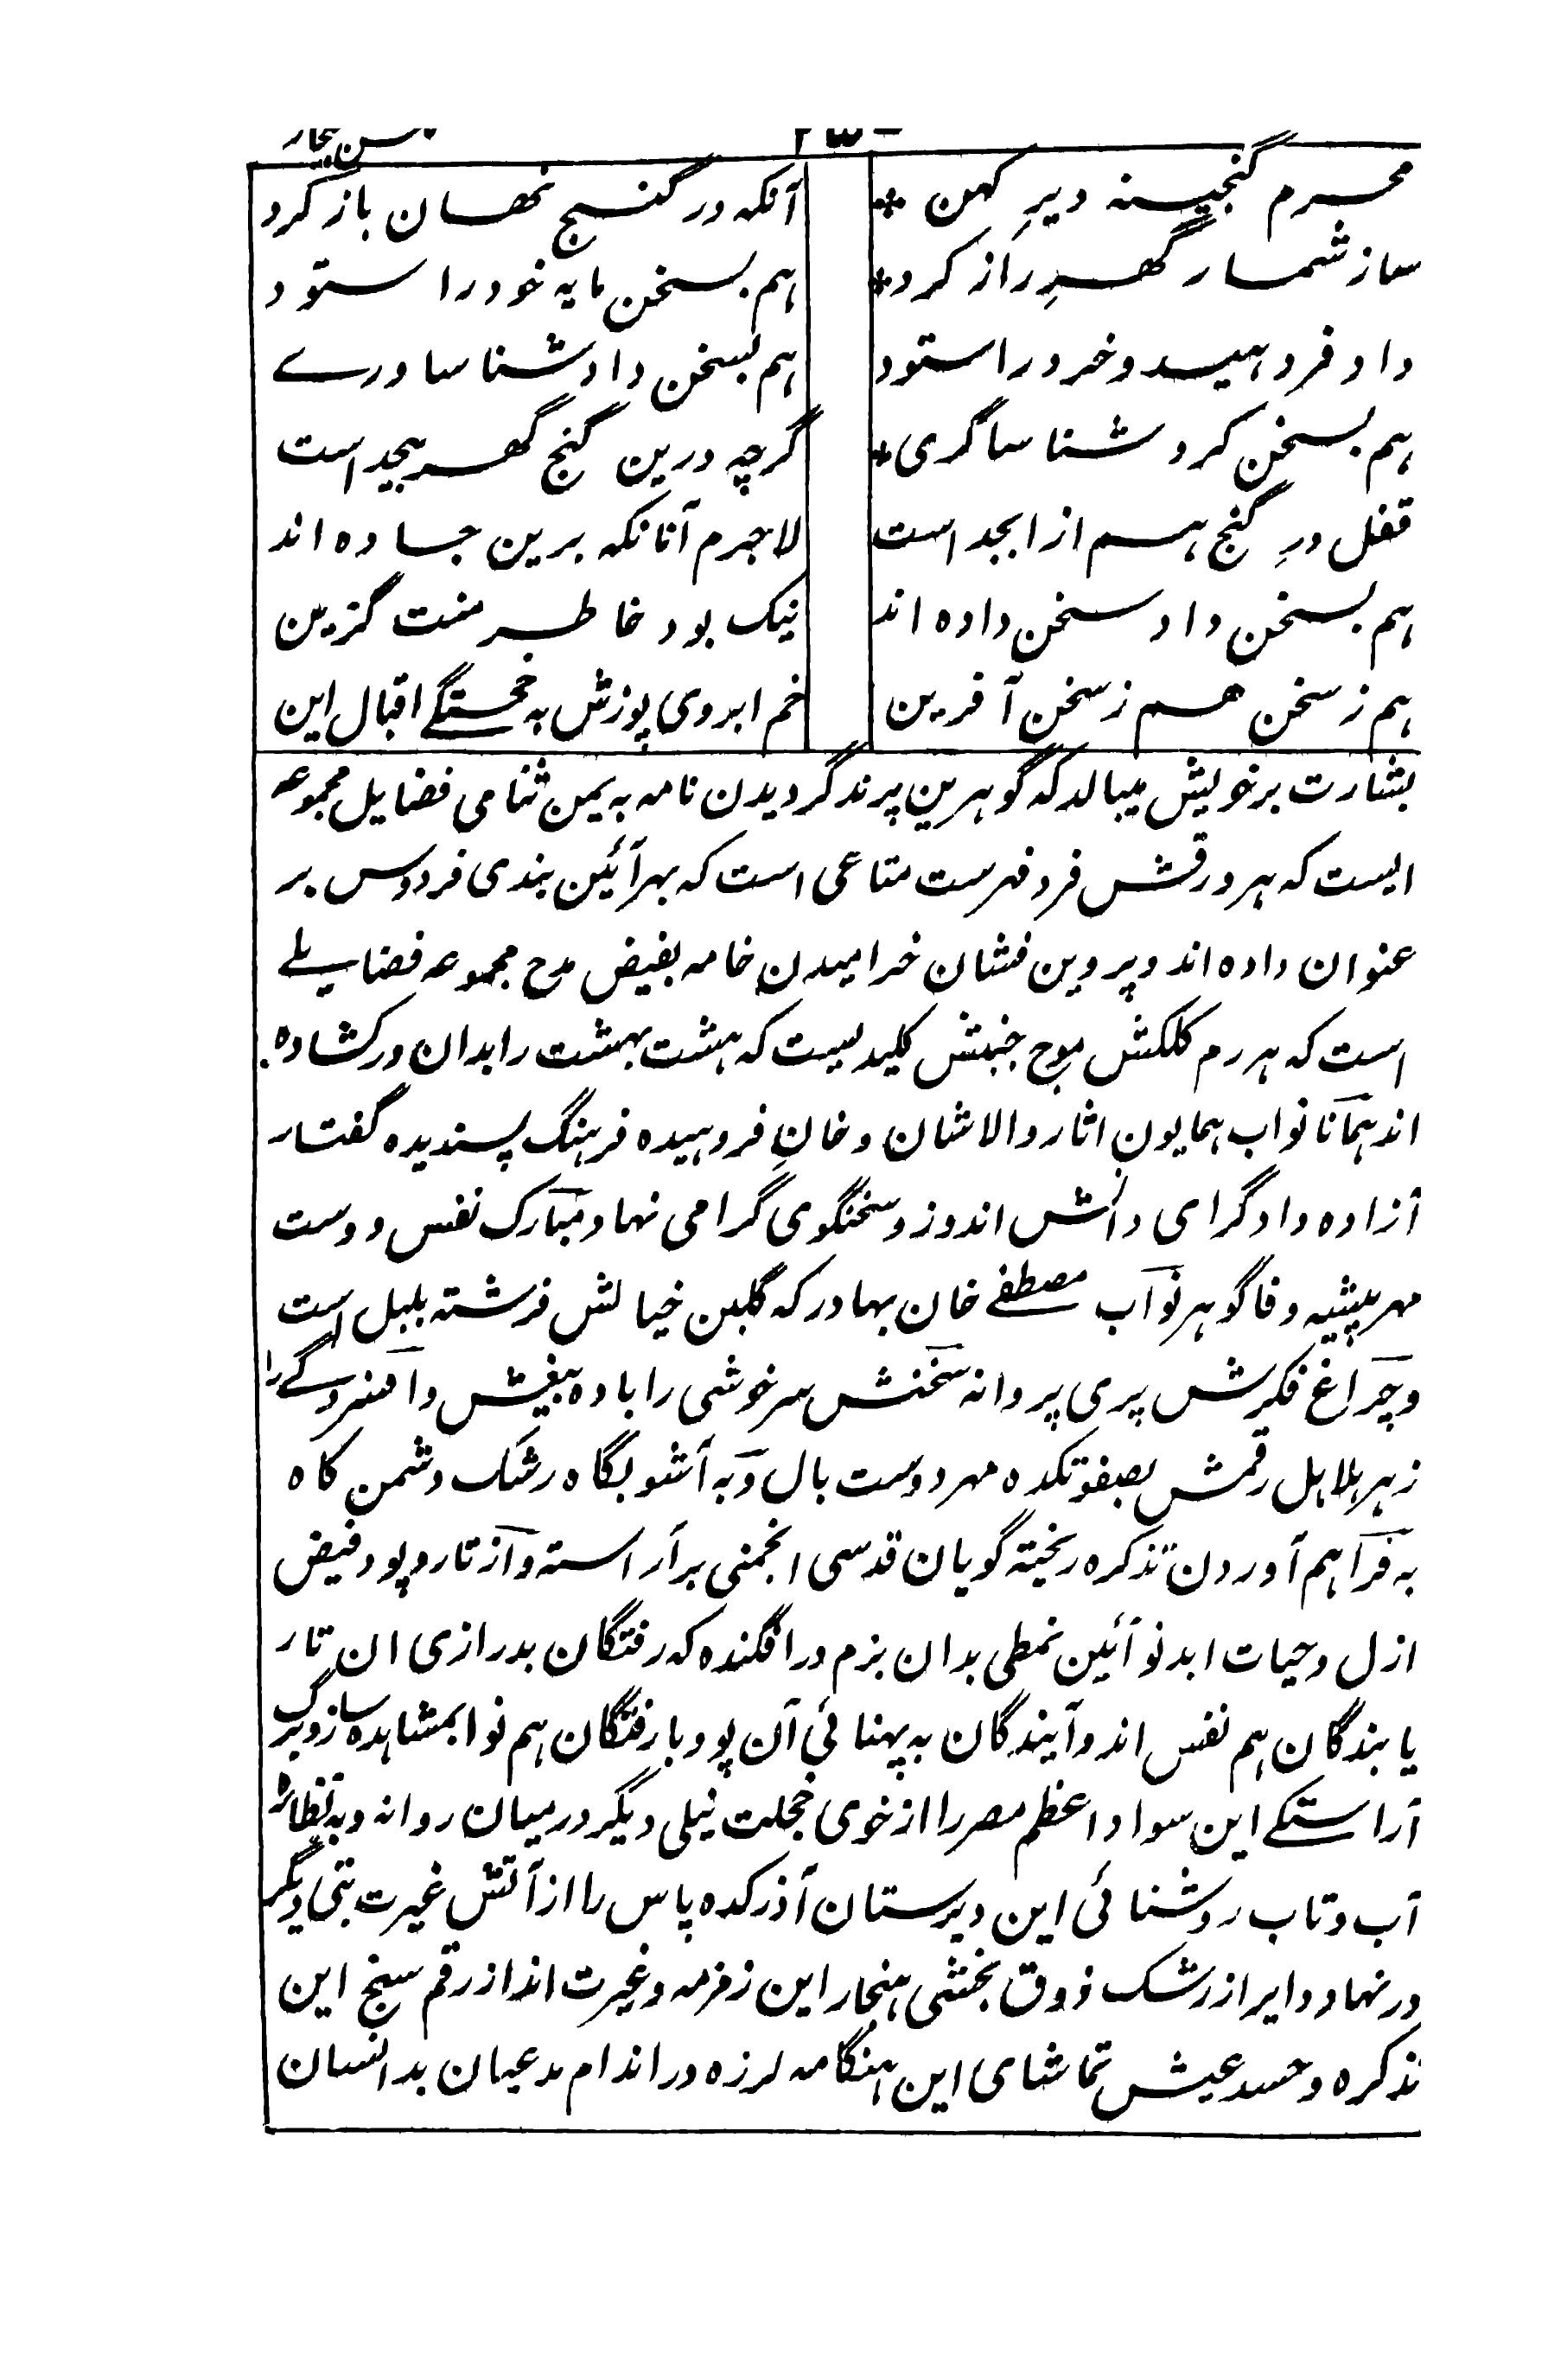 محرم گنجینه دیرِ کهن * آنکه در گنج نهان باز کرد
ساز شمار گهرِ راز کرد * هم بسخن مایه خود را ستود
داد فرد هید و خرد را ستود هم بسخن داد شناساوری
هم بسخن کرد شناساگری * گرچه درین گنج گهر بیحد است
قفل درِ گنج هم از ابجد است لاجرم آنانکه برین جاده اند
هم بسخن داد سخن داده اند نیک بود خاطر منت گزین
هم ز سخن هم ز سخن آفرین خم ابروی پوزش به خجستگی اقبال این
بشارت بر خویش میبالد که گوهرین پرند گردیدن نامه به یمن ثنامی فضایل مجموعه
ایست که هر ورقش فرد فهرست متاعی است که بهر آئین بندی فردوس بر
عنوان داده اند و پروین فشان خرامیدن خامه بفیض مدح مجموعه فضایلی
است که هر رم کلکش موج جنبش کلیدیست که هشت بهشت را بدان در کشاده
اند همانا نواب همایون اثار والاشان و خانِ فروهیده فرهنگ پسندیده گفتار
آزاده دادگرای دانش اندوز و سخنگوی گرامی نهاد مبارک نفس دوست
مهر پیشه وفا گوهر نواب مصطفی خان بهادر که گلبن خیالش فرشته بلبل است
و چراغ فکرش پری پروانه سخنش سرخوشی را باده بیغش و افسردگی را
زهر هلاهل رقمش بصفوتکده مهر دوست بال و به آشوبگاه رشک دشمن کاه
به فراهم آوردن تذکره ریخته گویان قدسی انجمنی برآراسته و از تار و پود فیض
ازل و حیات ابد نو آئین نمطی بدان بزم در افگنده که رفتگان بدرازی ان تار
یا بندگان هم نفس اند و آیندگان به پهنائی آن پود با رفتگان هم نوا بمشاهده ساز و برگ
آراستگی این سواد اعظم مصر را از خوی خجلت نیلی دیگر در میان روانه و به نظاره
آب و تاب روشنائی این دیرستان آذرکده پاس را از آتش غیرت تبی دیگر
در نهاد دایر از رشک ذوق بخشی هنجار این زمزمه و غیرت انداز رقم سنج این
تذکره و حسد عیش تماشای این هنگامه لرزه در اندام مدعیان بدانسان